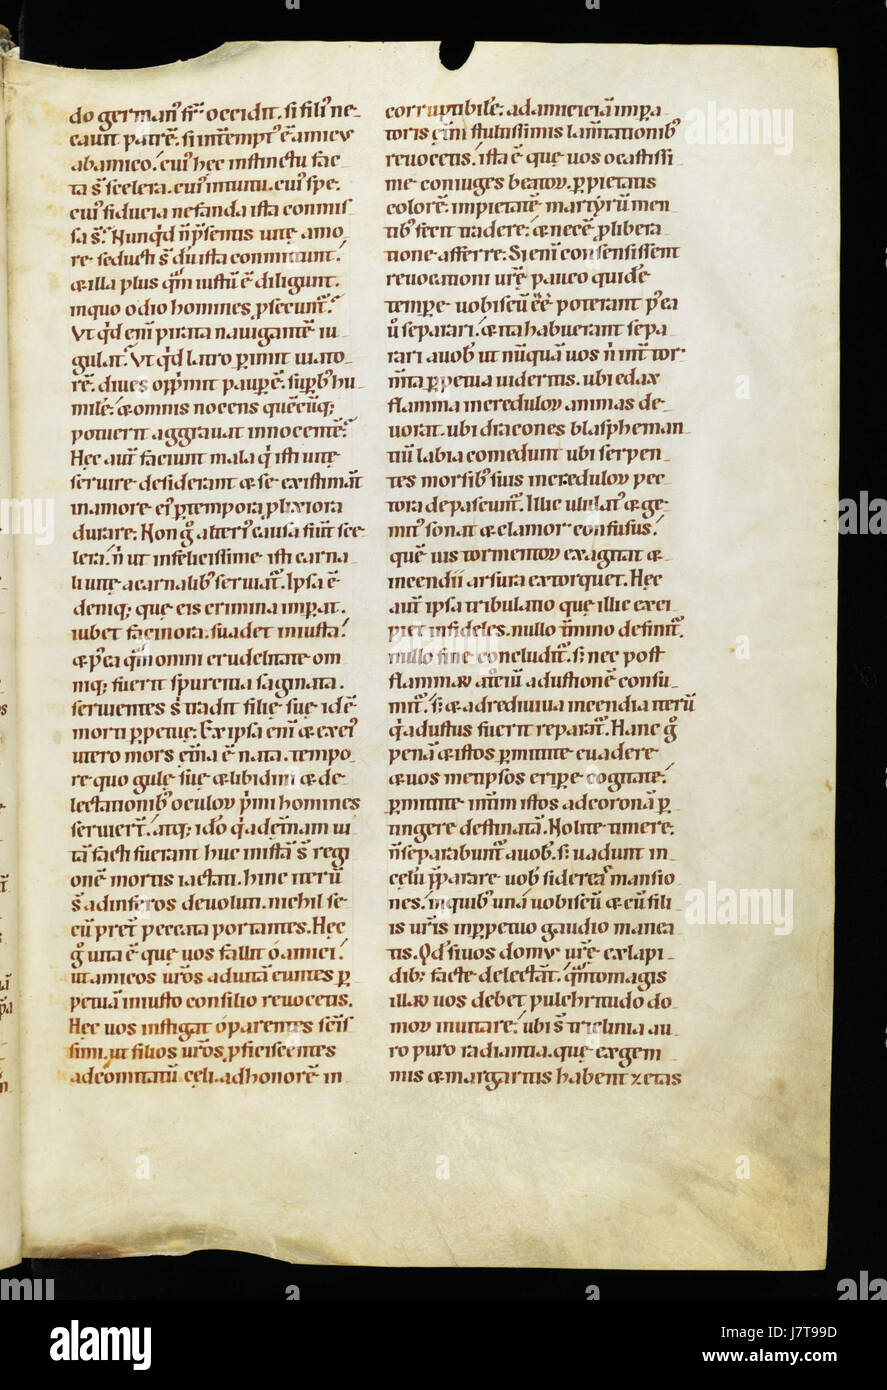 do german' fr̄ occidit. si fili' ne-
cauit patrē. si intēempt' ē amicus
ab amico. cui' hec instinctu fac
ta s̄ scelera. cui' intuitu. cui' spe.
cui' fiducia nefanda ista conmis
sa s̄. Nunqd n̄ p̄sentis uitę amo
re seducti s̄ dū ista conmittunt.
& illa plus qm̄ iustū ē diligunt.
in quo odio homines ꝓsecunt̄.
Vt qd eni pirata nauigantē iu
gulat. Vt qd latro ꝑimit uiato
rē. diues opp̄mit paupērē. supb' hu
milē. & omnis nocens quēcūq;
potuerit aggrauat innocentē.
Hęc aut̄ faciunt mala q̇ isti uitę
seruire desiderant & se existimāt
in amore ei' ꝑ tempora ꝓlixiora
durare. Non ḡ alteri' causa fiūt sce
lera. n̄ ut infelicissime isti carna
li uitę a carnalib' seruiat̄. Ipsa ē
deniq; quę eis crimina impat.
iubet facinora. suadet iniusta.
& p' ea qm̄ omni crudelitate om
niq; fuerit spurcitia saginata.
seruientes s̄ tradit filię suę idē
morti ꝑpetuę. Ex ipsa enī & ex ei'
utero mors et̄na ē nata. tempo
re quo gulę suę & libidini & de
lectationib' oculoꝝ p̄mi homines
serūiert̄. atq; ido' q̇ ad et̄nam ui
tā facti fuerant huc in istā s̄ regi
onē mortis iactati. hinc iterū
s̄ ad inferos deuoluti. nichil se
cū p̄t̄ peccata portantes. Hęc
ḡ uita ē que uos fallit ó amici.
ut amicos ur̄os ad uitā euntes ꝑ
petuā iniusto consilio reuocetis.
Hęc uos instigat ó parentes sc̄is
simi. ut filios ur̄os ꝓficiscentes
ad comitatū cęli. ad honorē in
corruptibilē. ad amiciciā impa
toris et̄ni stultissimis lam̄tationib'
reuocetis. ista ē quę uos ó castissi
me coniuges beatoꝝ. ꝑ pietatis
colorē. impietatē martyrū men
tib' fecit tradere. & necē ꝓ libera
tione afferre. Si enī consensissent
reuocationi ur̄ę pauco quidē
tempore uobiscū eē poterant p' ea
ū separari. & ita habuerant sepa
rari a uob' ut nūquā uos n̄ int̄ tor
m̄ta ꝑpetua uideritis. ubi edax
flamma increduloꝝ animas de
uorat. ubi dracones blaspheman
tiū labia comedunt ubi serpen
tes morsib' suis increduloꝝ pec
tora depascunt̄. Illic ululat' & ge
mit' sonat & clamor confusus.
quē uis tormentoꝝ exagitat &
incendii arsura extorquet. Hęc
aut̄ ipsa tribulatio quę illic exci
piet infideles. nullo t̄mino definit̄.
nullo fine concludit̄. s; nec post
flammaꝝ at̄ciū adustionē consu
mit̄. s; & ad rediuiua incendia iterū
q̇ adustus fuerit reparat̄. Hanc ḡ
penā & istos ꝑmittite euadere
& uos met ipsos eripe cogitate.
ꝑmittite intm̄ istos ad coronā ꝑ
tingere destinatā. Nolite timere.
n̄ separabunt̄ a uob'. s; uadunt in
cęlū p̄parare uob' sidereas mansio
nes. in quib' uná uobiscū & cū fili
is ur̄is in ꝑpetuo gaudio manea
tis. Qd si uos domus ur̄ę ex lapi
dib; factę delectāt. qn̄to magis
illaꝝ uos debet pulchritudo do
moꝝ inuitare. ubi s̄ triclinia au
ro puro radiantia. quę ex gem
mis & margaritis habent zetas
alamy
a
J7T99D
www.alamy.com